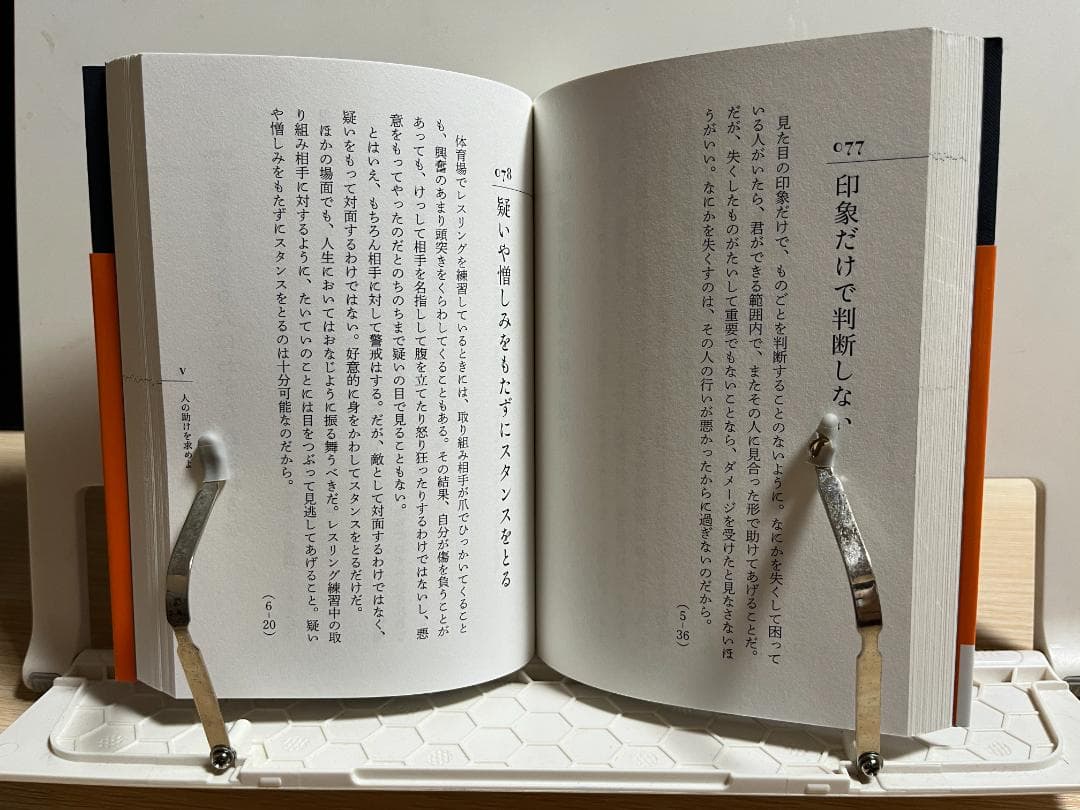 077
印象だけで判断しない
見た目の印象だけで、ものごとを判断することのないように。なにかを失くして困って
いる人がいたら、君ができる範囲内で、またその人に見合った形で助けてあげることだ。
だが、失くしたものがたいして重要でもないことなら、ダメージを受けたと見なさないほ
うがいい。なにかを失くすのは、その人の行いが悪かったからに過ぎないのだから。
(5-36)
078
疑いや憎しみをもたずにスタンスをとる
体育場でレスリングを練習しているときには、取り組み相手が爪でひっかいてくること
も、興奮のあまり頭突きをくらわしてくることもある。その結果、自分が傷を負うことが
あっても、けっして相手を名指しして腹を立てたり怒り狂ったりするわけではないし、悪
意をもってやったのだとのちのちまで疑いの目で見ることもない。
とはいえ、もちろん相手に対して警戒はする。だが、敵として対面するわけではなく、
疑いをもって対面するわけではない。好意的に身をかわしてスタンスをとるだけだ。
ほかの場面でも、人生においてはおなじように振る舞うべきだ。レスリング練習中の取
り組み相手に対するように、たいていのことには目をつぶって見逃してあげること。疑い
や憎しみをもたずにスタンスをとるのは十分可能なのだから。
(6-20)
V 人の助けを求めよ